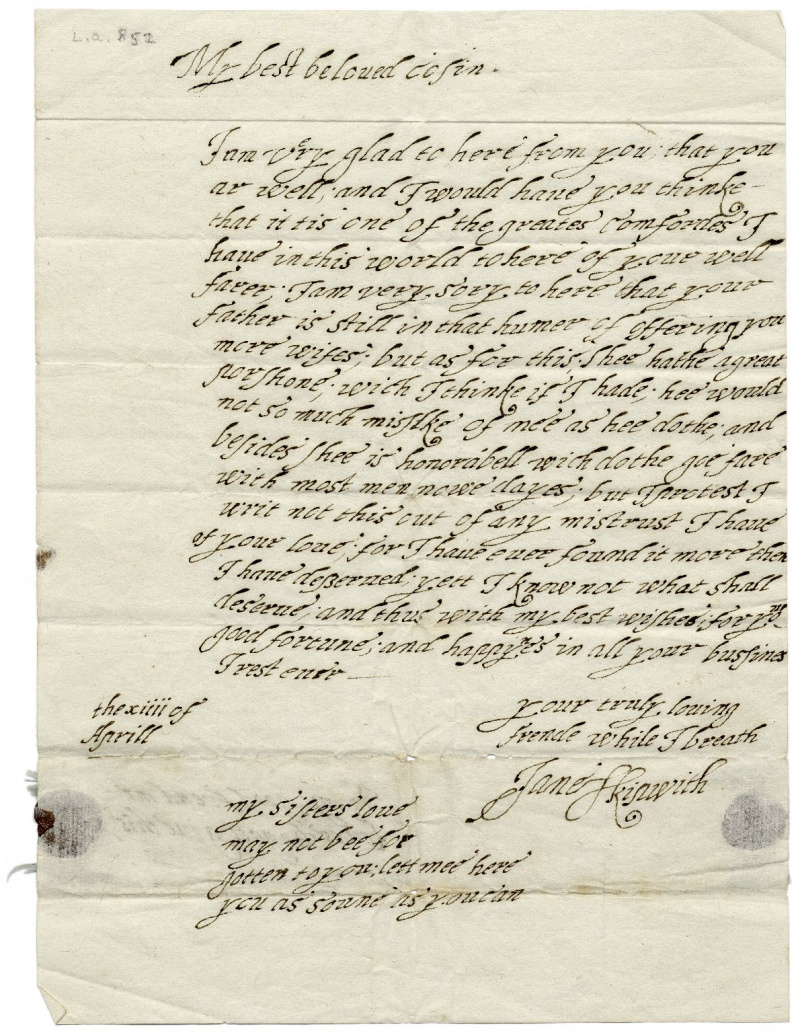 L.a. 852
My best beloued cosin.
I am very glad to here from you; that you
ar well; and I would haue you thinke
that it tis one of the greates comfordes I
haue in this world to here of your well
farer; I am very sory to here that your
father is still in that humer of offering you
more wifes; but as for this, shee hathe a great
porshone; wich I thinke if I hade; hee would
not so much mislke of mee as hee dothe; and
besides shee is honorabell wich dothe goe fare
with most men nowe dayes; but I protest I
writ not this out of any mistrust I haue
of your loue; for I haue euer found it more then
I haue deserued; yett I know not what shall
deserue; and thus with my best wishes, for your
good fortune; and happynes in all your bussines
I rest euer
the xiiii of
Aprill
your truly louing
frende while I breath
Jane Skipwith
my sisters loue
may not bee for
gotten to you; lett mee here
you as soune as you can